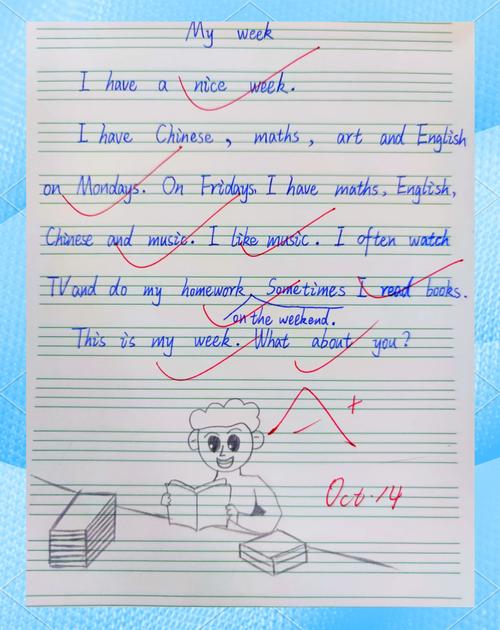 My week
I have a nice week.
I have Chinese, maths, art and English
on Mondays. On Fridays, I have maths, English,
Chinese and music. I like music. I often watch
TV and do my homework Sometimes I read books.
on the weekend.
This is my week. What about you?
A+
Oct.14